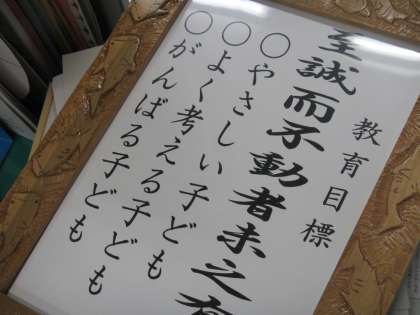 教育目標
至誠而不動者未之有
○やさしい子ども
○よく考える子ども
○がんばる子ども